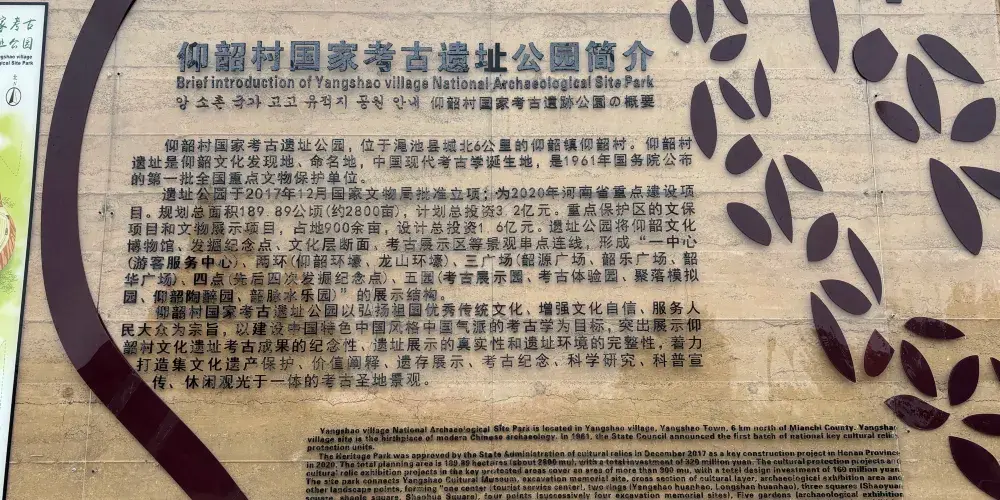 家考古
址公园
ngshao village
logical Site Park
北
仰韶村国家考古遗址公园简介
Brief introduction of Yangshao village National Archaeological Site Park
앙 소촌 국가 고고 유적지 공원 안내 仰韶村国家考古遺跡公園の概要
仰韶村国家考古遗址公园，位于渑池县城北6公里的仰韶镇仰韶村。仰韶村
遗址是仰韶文化发现地、命名地，中国现代考古学诞生地，是1961年国务院公布
的第一批全国重点文物保护单位。
遗址公园于2017年12月国家文物局批准立项；为2020年河南省重点建设项
目。规划总面积189.89公顷(约2800亩)，计划总投资3.2亿元。重点保护区的文保
项目和文物展示项目，占地900余亩，设计总投资1.6亿元。遗址公园将仰韶文化
博物馆、发掘纪念点、文化层断面，考古展示区等景观串点连线，形成“一中心
(游客服务中心)、两环(仰韶环壕、龙山环壕)、三广场(韶源广场、韶乐广场、韶
华广场)、四点(先后四次发掘纪念点)、五园(考古展示园、考古体验园、聚落模拟
园、仰韶陶醉园、韶脉水乐园)”的展示结构。
仰韶村国家考古遗址公园以弘扬祖国优秀传统文化、增强文化自信、服务人
民大众为宗旨，以建设中国特色中国风格中国气派的考古学为目标，突出展示仰
韶村文化遗址考古成果的纪念性、遗址展示的真实性和遗址环境的完整性，着力
打造集文化遗产保护、价值阐释、遗存展示、考古纪念、科学研究、科普宣
传、休闲观光于一体的考古圣地景观。
Yangshao village National Archaeological Site Park is located in Yangshao village, Yangshao Town, 6 km north of Mianchi County. Yangshao
village site is the birthplace of modern Chinese archaeology. In 1961, the State Council announced the first batch of national key cultural relic
protection units.
The Heritage Park was approved by the State Administration of cultural relics in December 2017 as a key construction project in Henan Province
in 2020. The total planning area is 189.89 hectares (about 2800 mu), with a total investment of 320 million yuan. The cultural protection projects and
cultural relic exhibition projects in the key protected areas cover an area of more than 900 mu, with a total design investment of 160 million yuan.
The site park connects Yangshao Cultural Museum, excavation memorial site, cross section of cultural layer, archaeological exhibition area and
other landscape points, forming "one center (tourist service center), two rings (Yangshao huanhao, Longshan huanhao), three squares (Shaoyuan
square, shaole square, Shaohua Square), four points (successively four excavation memorial sites), Five gardens (archaeological exhibition